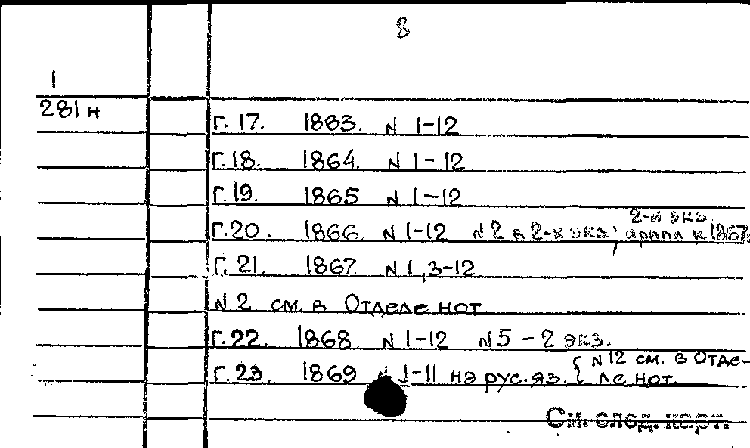 8
1
281 н
Г. 17. 1883. N 1-12
Г. 18. 1864. N 1-12
Г. 19. 1865 N 1-12
2-й экз.
Г. 20. 1866. N 1-12 N 2 в 2-х экз; к 1867.
Г. 21. 1867 N 1, 3-12
N 2 см. в Отделе нот
Г. 22. 1868 N 1-12 N 5 - 2 экз.
Г. 23. 1869 N 1-11 на рус. яз. { N 12 см. в Отде-
ле нот.
См. след. карт.